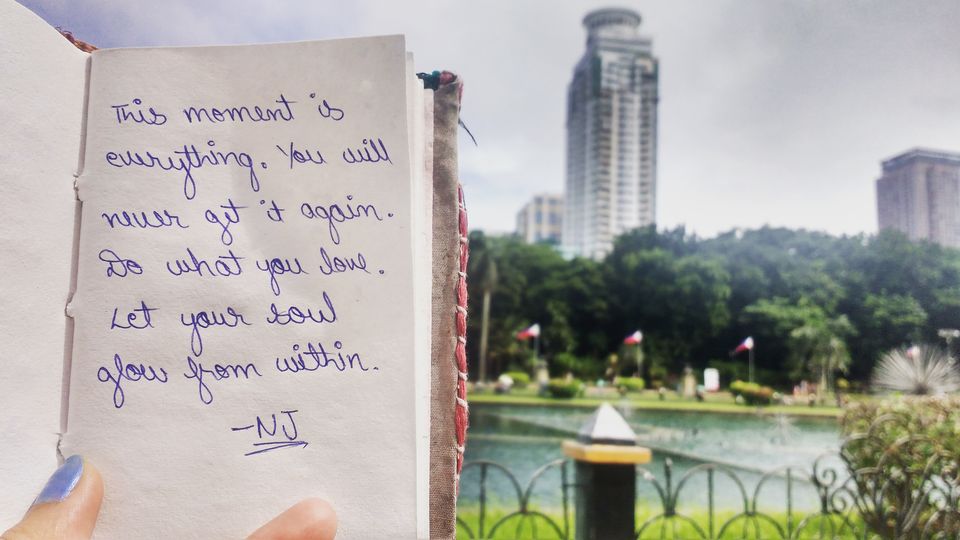 This moment is
everything. You will
never get it again.
Do what you love.
Let your soul
glow from within.
-NJ